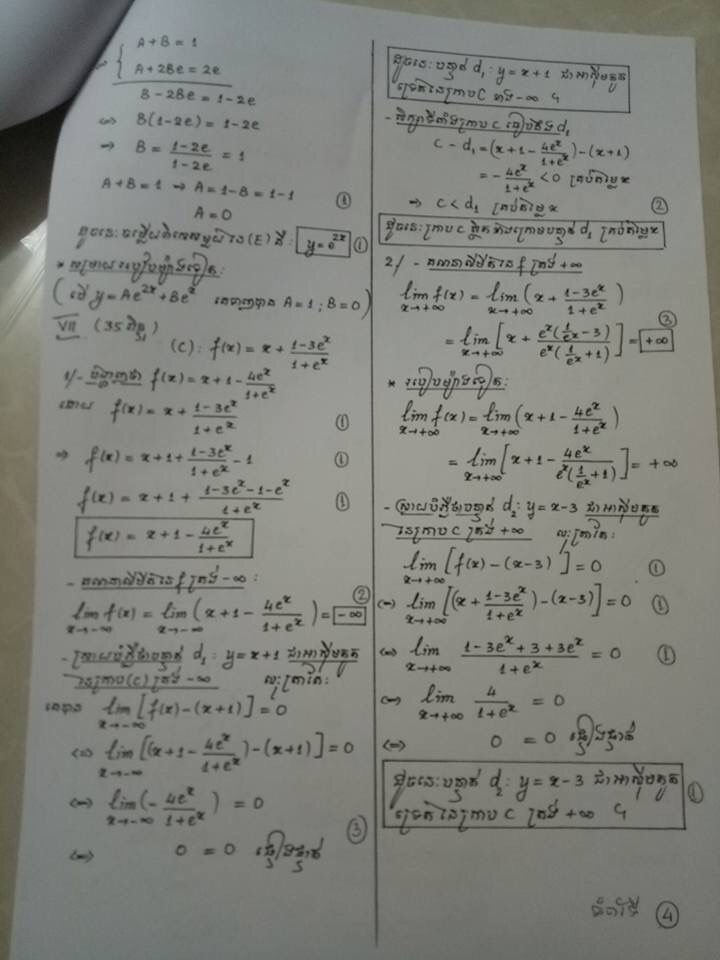 A + B = 1
⇒ { A + 2Be = 2e
B - 2Be = 1 - 2e
⇔ B(1-2e) = 1-2e
⇒ B = \frac{1-2e}{1-2e} = 1
A + B = 1 ⇒ A = 1 - B = 1 - 1
A = 0 ①
ដូចនេះ ចម្លើយពិសេសមួយនៃ (E) គឺ: y = e^{2x} ①
* សម្រាយរបៀបម្យ៉ាងទៀត:
(បើ y = Ae^{2x} + Be^x គេទាញបាន A = 1 ; B = 0)
VII (35 ពិន្ទុ)
(C) : f(x) = x + \frac{1-3e^x}{1+e^x}
1/- បង្ហាញថា f(x) = x + 1 - \frac{4e^x}{1+e^x}
ដោយ f(x) = x + \frac{1-3e^x}{1+e^x} ①
⇒ f(x) = x + 1 + \frac{1-3e^x}{1+e^x} - 1 ①
f(x) = x + 1 + \frac{1-3e^x-1-e^x}{1+e^x} ①
f(x) = x + 1 - \frac{4e^x}{1+e^x}
- គណនាលីមីតនៃ f ត្រង់ -∞ :
②
lim_{x→-∞} f(x) = lim_{x→-∞} (x + 1 - \frac{4e^x}{1+e^x}) = -∞
- ស្រាយបំភ្លឺថាបន្ទាត់ d₁ : y = x+1 ជាអាស៊ីមតូត
នៃក្រាប (C) ត្រង់ -∞ លុះត្រាតែ:
គេបាន lim_{x→-∞} [f(x) - (x+1)] = 0
⇔ lim_{x→-∞} [(x+1 - \frac{4e^x}{1+e^x}) - (x+1)] = 0
⇔ lim_{x→-∞} (- \frac{4e^x}{1+e^x}) = 0
③
⇔ 0 = 0 ផ្ទៀងផ្ទាត់
ដូចនេះ បន្ទាត់ d₁ : y = x+1 ជាអាស៊ីមតូត
ទ្រេតនៃក្រាប C ខាង -∞ ។
- សិក្សាទីតាំងក្រាប C ធៀបនឹង d₁
C - d₁ = (x+1 - \frac{4e^x}{1+e^x}) - (x+1)
= - \frac{4e^x}{1+e^x} < 0 គ្រប់តម្លៃ x
⇒ C < d₁ គ្រប់តម្លៃ x ②
ដូចនេះ ក្រាប C ស្ថិតខាងក្រោមបន្ទាត់ d₁ គ្រប់តម្លៃ x
2/ - គណនាលីមីតនៃ f ត្រង់ +∞
lim_{x→+∞} f(x) = lim_{x→+∞} (x + \frac{1-3e^x}{1+e^x})
③
= lim_{x→+∞} [x + \frac{e^x(\frac{1}{e^x}-3)}{e^x(\frac{1}{e^x}+1)}] = +∞
* របៀបម្យ៉ាងទៀត:
lim_{x→+∞} f(x) = lim_{x→+∞} (x+1 - \frac{4e^x}{1+e^x})
= lim_{x→+∞} [x+1 - \frac{4e^x}{e^x(\frac{1}{e^x}+1)}] = +∞
- ស្រាយបំភ្លឺថាបន្ទាត់ d₂ : y = x-3 ជាអាស៊ីមតូត
នៃក្រាប C ត្រង់ +∞ លុះត្រាតែ:
lim_{x→+∞} [f(x) - (x-3)] = 0 ①
⇔ lim_{x→+∞} [(x + \frac{1-3e^x}{1+e^x}) - (x-3)] = 0 ①
⇔ lim_{x→+∞} \frac{1-3e^x+3+3e^x}{1+e^x} = 0 ①
⇔ lim_{x→+∞} \frac{4}{1+e^x} = 0
⇔ 0 = 0 ផ្ទៀងផ្ទាត់
ដូចនេះ បន្ទាត់ d₂ : y = x-3 ជាអាស៊ីមតូត ①
ទ្រេតនៃក្រាប C ត្រង់ +∞ ។
ទំព័រទី ④